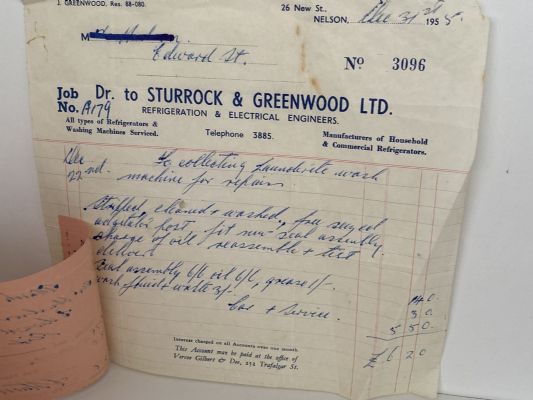 J. GREENWOOD, Res. 88-080.
26 New St.,
NELSON, Dec 31st 1955.
M
Edward St.
No 3096
Job Dr. to STURROCK & GREENWOOD LTD.
No. A179 REFRIGERATION & ELECTRICAL ENGINEERS.
All types of Refrigerators &
Washing Machines Serviced.
Telephone 3885.
Manufacturers of Household
& Commercial Refrigerators.
Dec 22nd. To collecting Launderite wash
machine for repairs
Stripped, cleaned & washed, free seized
agitator post, fit new seal assembly
charge of oil, reassemble & test
deliver.
Seal assembly 6/6 oil 6/6, grease 1/-
fluid & waste 3/-
14 0.
Car & Service. 3 0.
5 5 0.
£6 2 0
Interest charged on all Accounts over one month
This Account may be paid at the office of
Verrue Gilbert & Dee, 252 Trafalgar St.